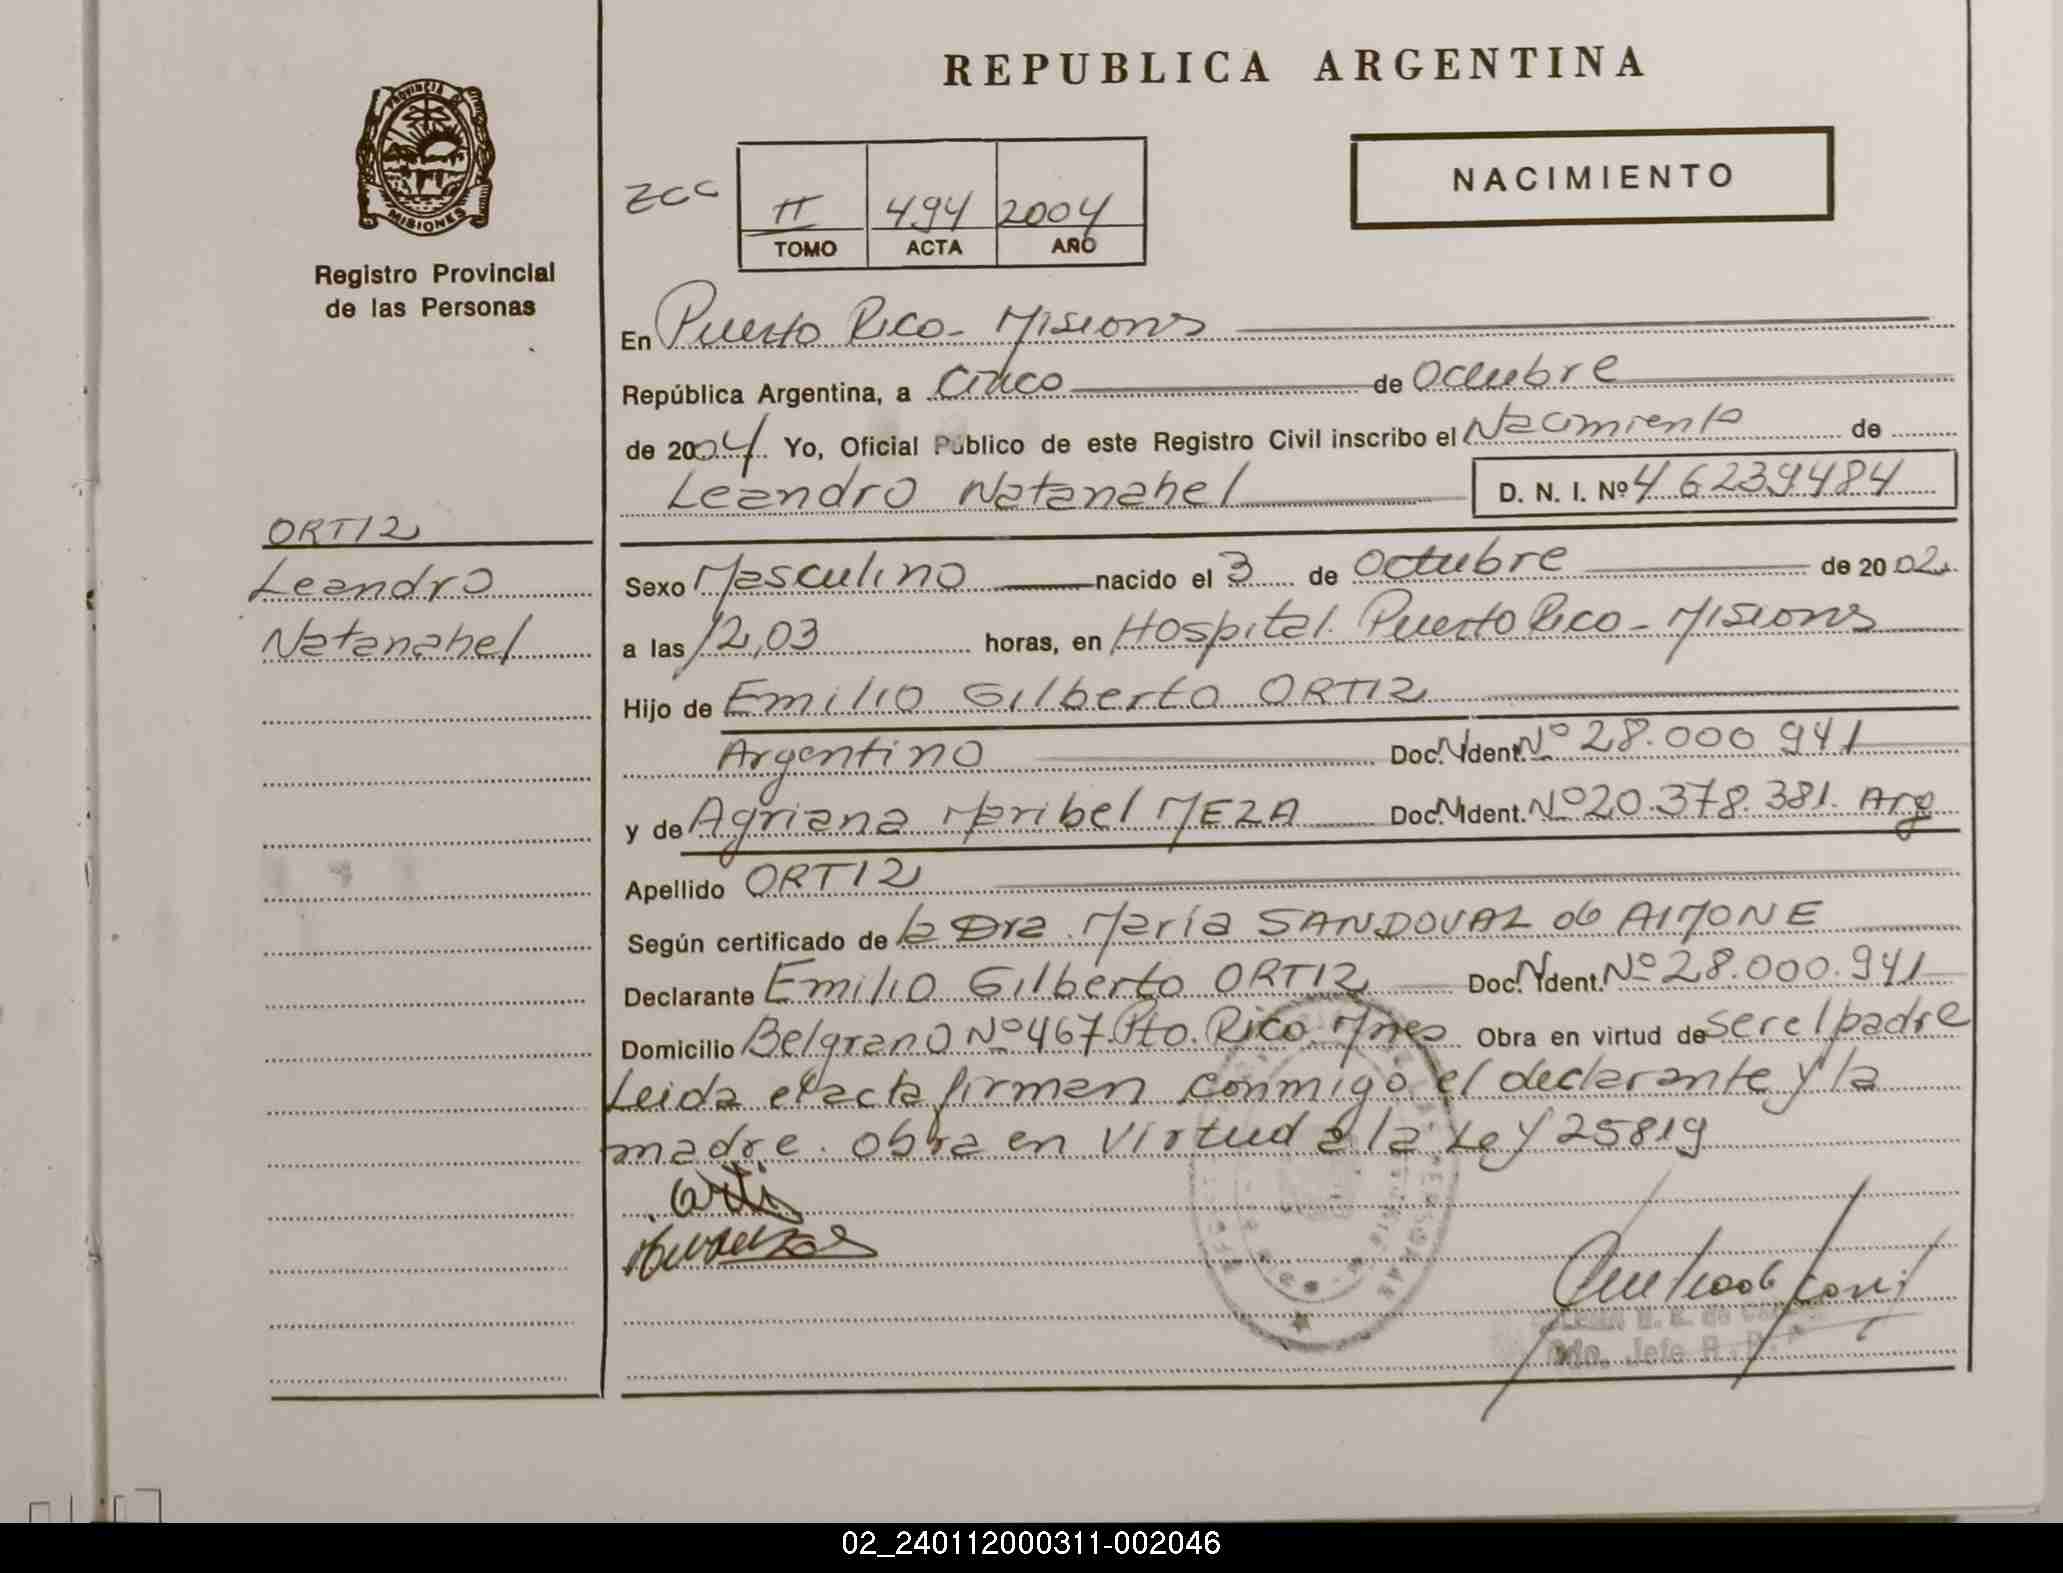 REPUBLICA ARGENTINA
PROVINCIA DE
MISIONES
Registro Provincial
de las Personas
NACIMIENTO
ZCC
II 494 2004
TOMO ACTA AÑO
En Puerto Rico - Misiones
República Argentina, a Cinco de Octubre
de 2004 Yo, Oficial Público de este Registro Civil inscribo el Nacimiento de
Leandro Natanahel D. N. I. Nº 46239484
ORTIZ
Leandro
Natanahel
Sexo Masculino nacido el 3 de Octubre de 2002
a las 12,03 horas, en Hospital Puerto Rico - Misiones
Hijo de Emilio Gilberto ORTIZ
Argentino Doc. N Ident. Nº 28.000.941
y de Agriana Maribel MEZA Doc. N Ident. Nº 20.378.381. Arg
Apellido ORTIZ
Según certificado de la Dra. María SANDOVAL de AIMONE
Declarante Emilio Gilberto ORTIZ Doc. N Ident. Nº 28.000.941
Domicilio Belgrano Nº 467. Pto. Rico. Mnes Obra en virtud de ser el padre
Leida el acta firman conmigo el declarante y la
madre. Obra en virtud a la Ley 25819
02_240112000311-002046